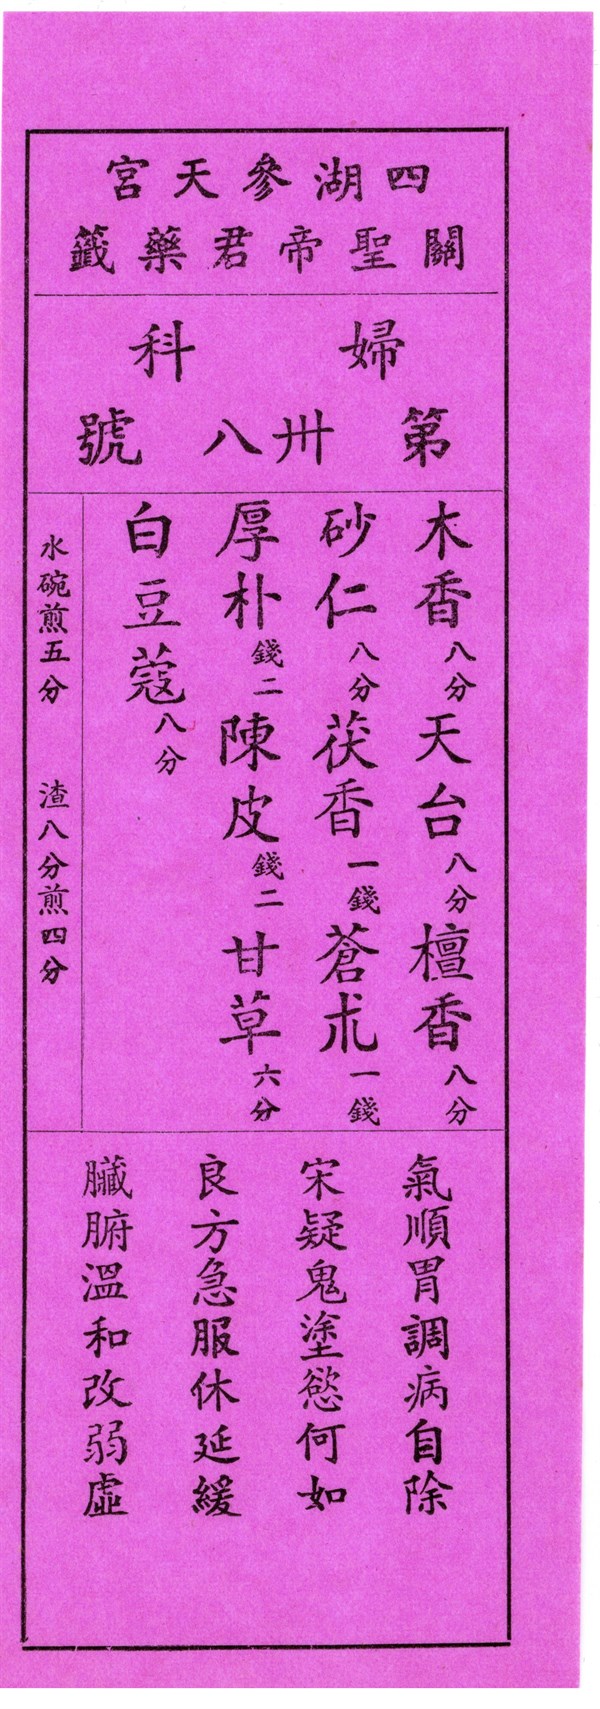 四湖參天宮
關聖帝君藥籤
婦科
第卅八號
木香八分天台八分檀香八分
砂仁八分茯香一錢蒼朮一錢
厚朴錢二陳皮錢二甘草六分
白豆蔻八分
水碗煎五分 渣八分煎四分
氣順胃調病自除
宋疑鬼塗慾何如
良方急服休延緩
臟腑溫和改弱虛